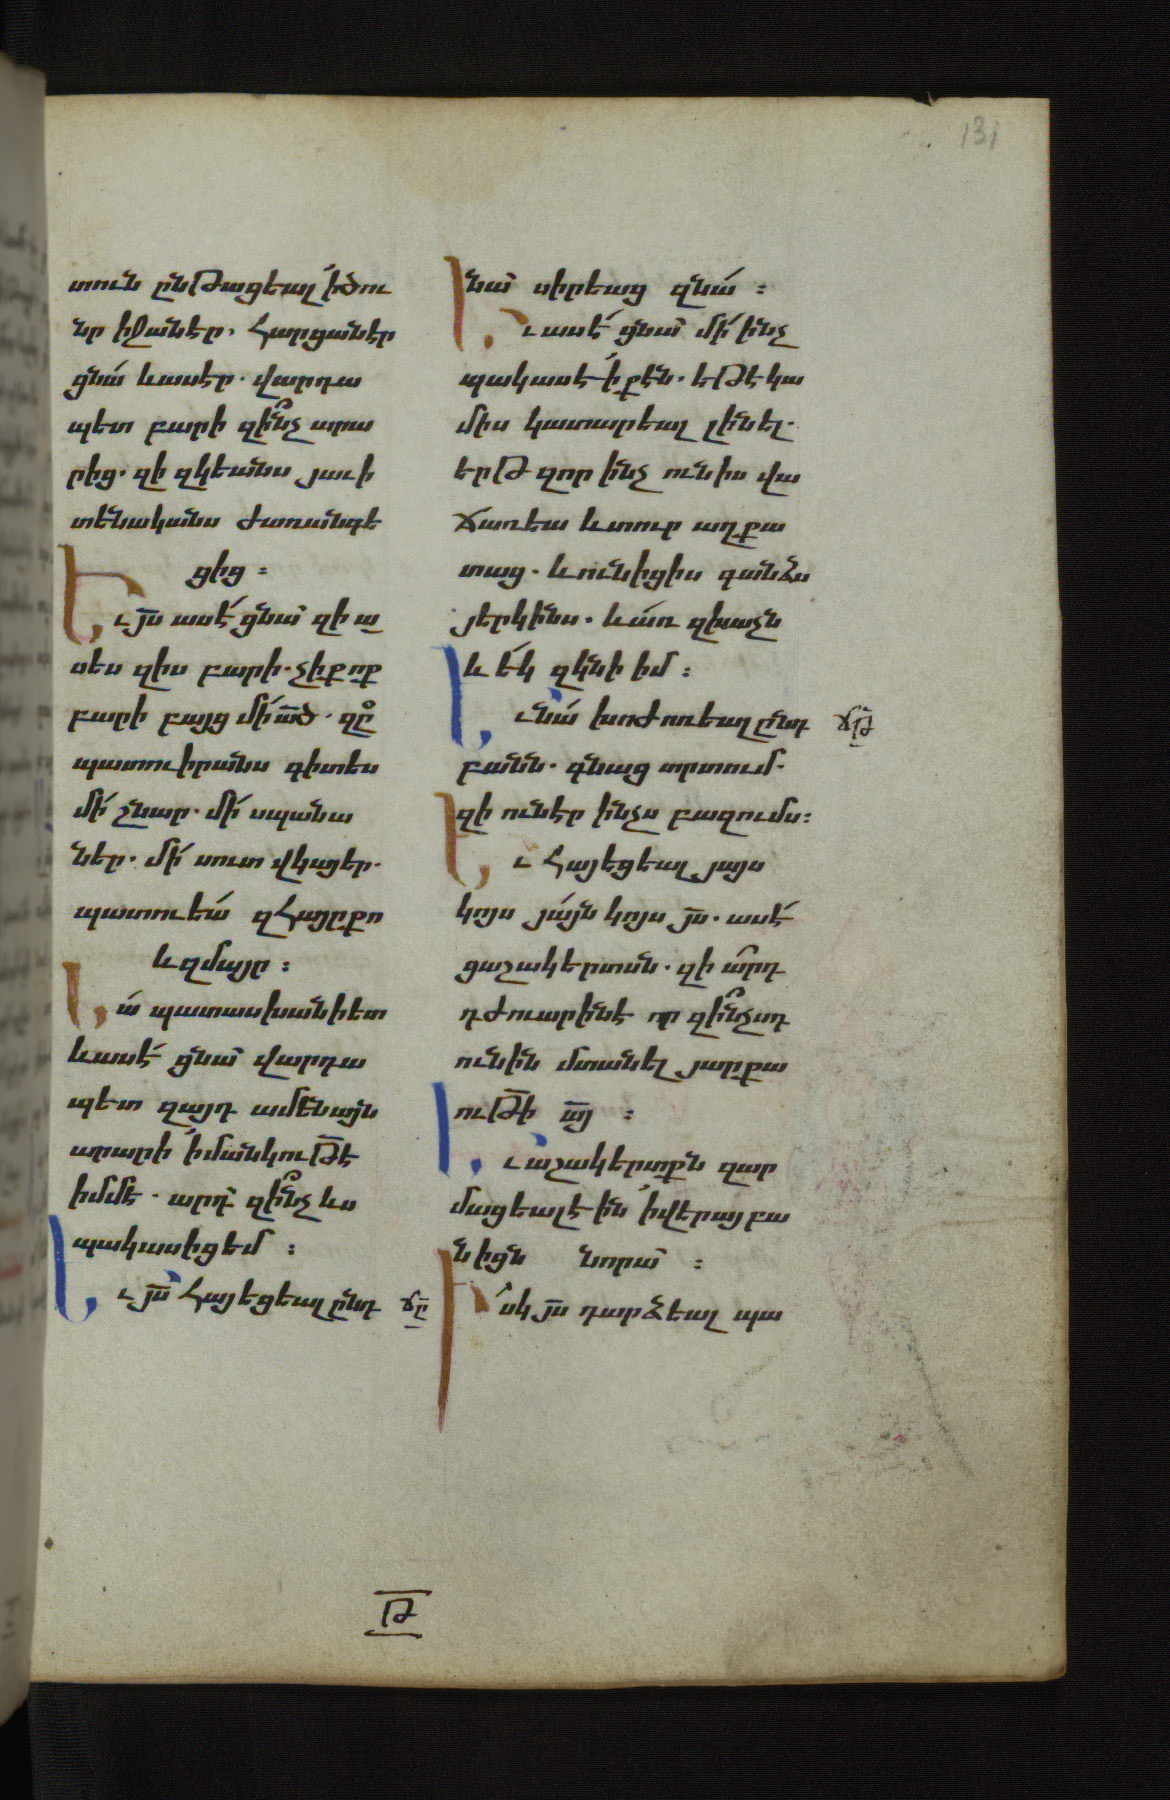 131
տուն ընթացեալ ՛ի ծու
նր իջանէր. Հարցանէր
ցնա՛ և ասէր. վարդա
պետ բարի զի՞նչ արա
րից. զի զկեանս յաւի
տենականս ժառանգե
ցից :
Եւ յս̅ ասէ՛ ցնա՛ զի ա
սես զիս բարի. չիք ոք
բարի բայց մի՛ ա̅ծ. զը
պատուիրանս գիտես
մի՛ շնար. մի՛ սպանա
ներ. մի՛ սուտ վկայեր.
պատուեա՛ զՀայր քո
և զմայր :
Նա՛ պատասխանի ետ
և ասէ՛ ցնա՛ վարդա
պետ զայդ ամենայն
արարի ՛ի մանկութէ̅
իմմէ. արդ՝ զի՞նչ ևս
պակասիցեմ :
Եւ յս̅ Հայեցեալ ընդ
ճը̅
նա՛ սիրեաց զնա՛ :
Եւ ասէ՛ ցնա՛ մի՛ ինչ
պակասէ ՛ի քէն. եթէ կա
միս կատարեալ լինել.
երթ զոր ինչ ունիս վա
ճառեա և տուր աղքա
տաց. և ունիցիս գանձս
յերկինս. և ա՛ռ զխաչն
և ե՛կ զկնի իմ :
Եւ նա՛ խոժոռեալ ընդ
ճթ̅
բանն. գնաց տրտում.
զի ունէր ինչս բազումս :
Եւ Հայեցեալ յայս
կոյս յա՛յն կոյս յս̅. ասէ՛
ցաշակերտսն. զի ա՛րդ
դժուարին է որ զի՞նչսդ
ունին մտանել յարքա
ութի̅ ա̅յ :
Եւ աշակերտքն զար
մացեալ էին ՛ի վերայ բա
նիցն նորա՛ :
Իսկ յս̅ դարձեալ պա
Թ